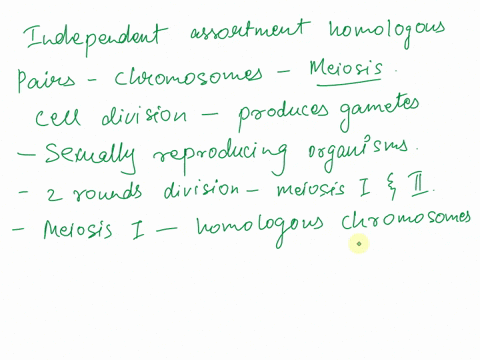 Independent assortment homologous
Pairs - chromosomes - Meiosis.
Cell division - produces gametes
- Sexually reproducing organisms.
- 2 rounds division - meiosis I & II.
- Meiosis I - homologous chromosomes